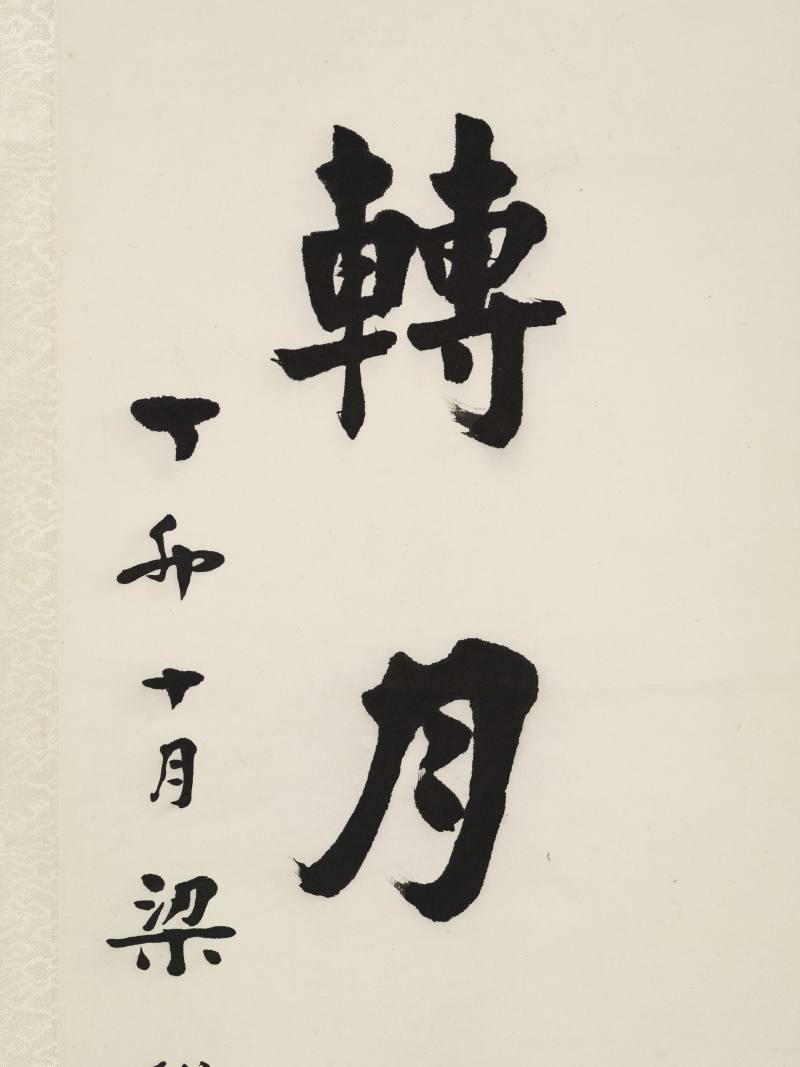 轉月
丁卯十月梁